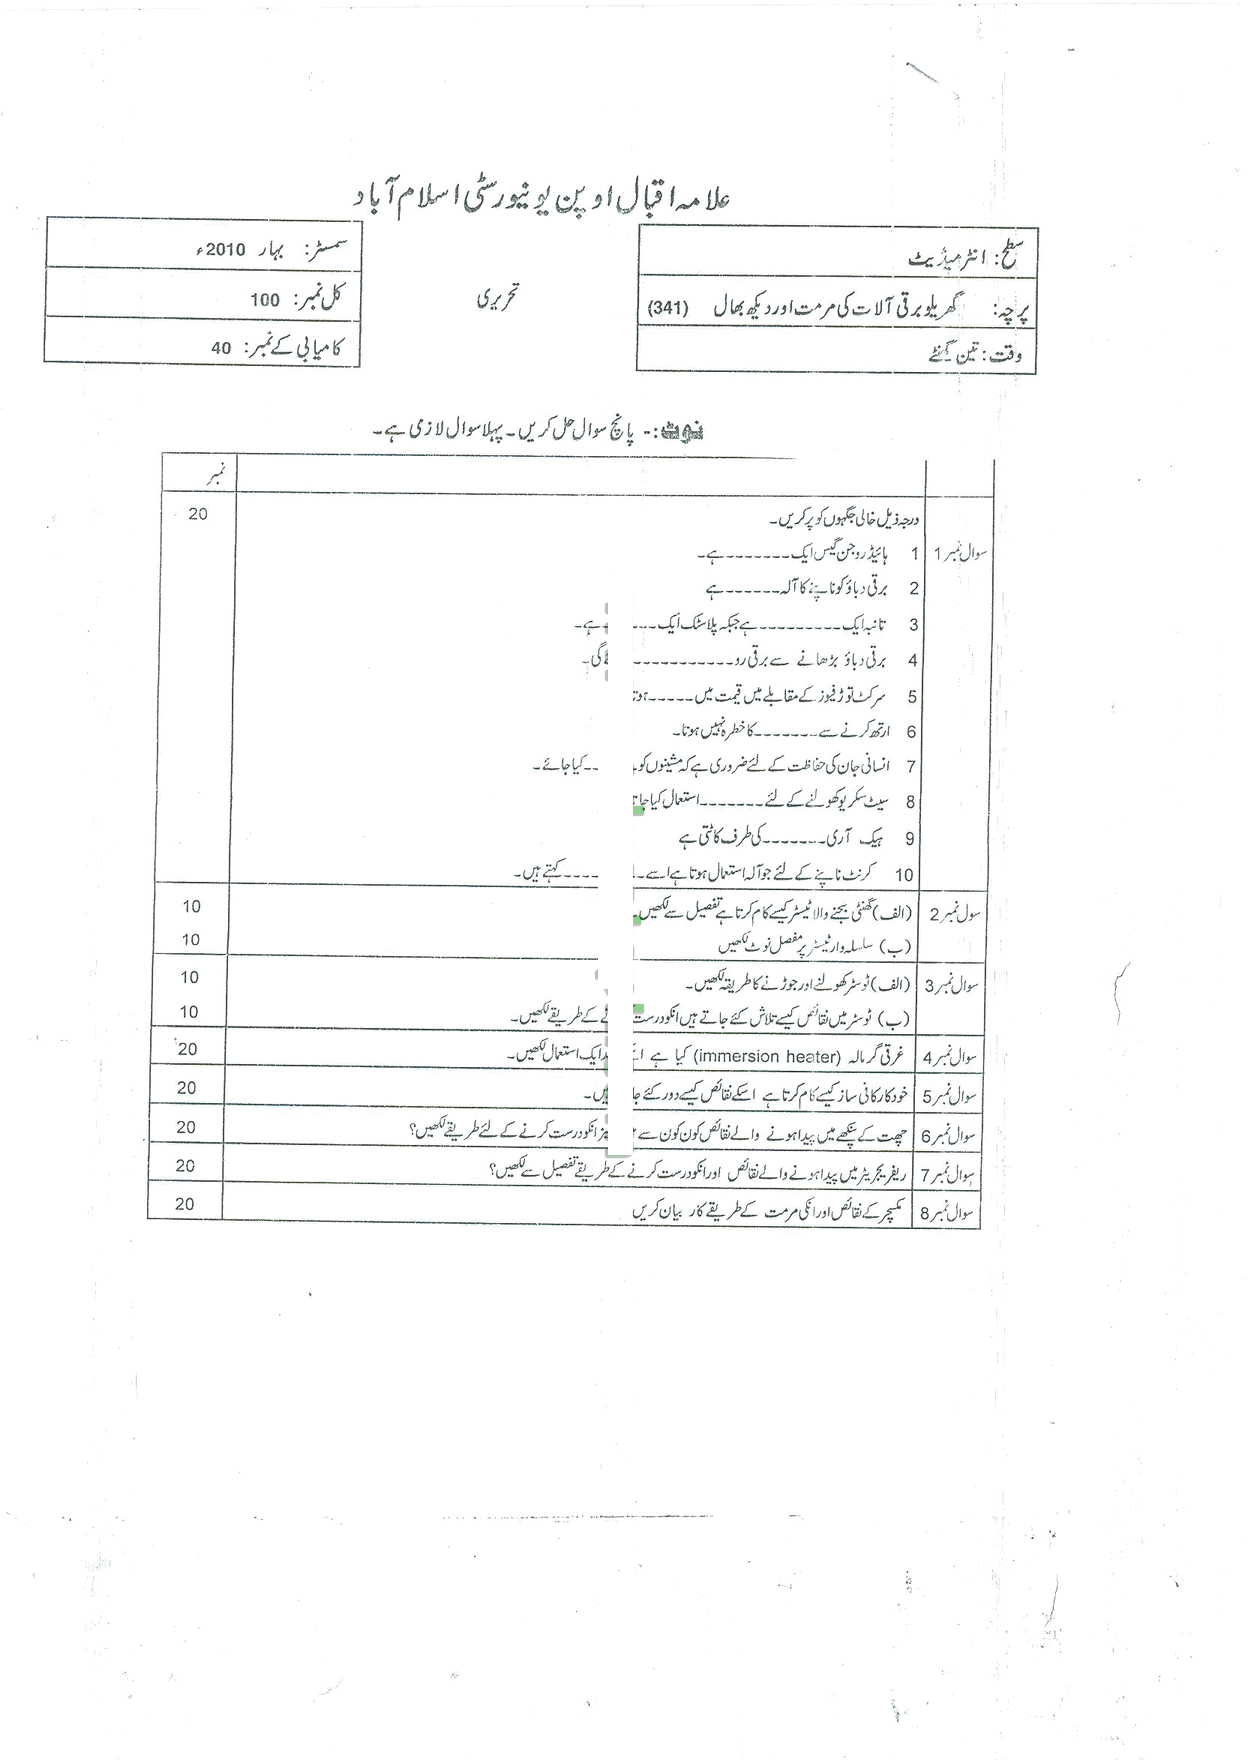 علامہ اقبال اوپن یونیورسٹی اسلام آباد
سطح: انٹرمیڈیٹ
پرچہ: گھریلو برقی آلات کی مرمت اور دیکھ بھال (341)
وقت: تین گھنٹے
تحریری
سمسٹر: بہار 2010ء
کل نمبر: 100
کامیابی کے نمبر: 40
نوٹ:- پانچ سوال حل کریں۔ پہلا سوال لازمی ہے۔
نمبر
درجہ ذیل خالی جگہوں کو پر کریں۔ 20
سوال نمبر 1
1 ہائیڈروجن گیس ایک -------- ہے۔
2 برقی دباؤ کو ناپنے کا آلہ ------- ہے
3 تانبہ ایک ---------- ہے جبکہ پلاسٹک ایک ---- ہے۔
4 برقی دباؤ بڑھانے سے برقی رو ------------ گی۔
5 سرکٹ توڑ فیوز کے مقابلے میں قیمت میں -----
6 ارتھ کرنے سے -------- کا خطرہ نہیں ہوتا۔
7 انسانی جان کی حفاظت کے لئے ضروری ہے کہ مشینوں کو -- کیا جائے۔
8 سیٹ سکریو کھولنے کے لئے ------- استعمال کیا
9 ہیک آری ------- کی طرف کاٹتی ہے
10 کرنٹ ناپنے کے لئے جو آلہ استعمال ہوتا ہے اسے ---- کہتے ہیں۔
سول نمبر 2 (الف) گھنٹی بجنے والا ٹیسٹر کیسے کام کرتا ہے تفصیل سے لکھیں۔ 10
(ب) سلسلہ وار ٹیسٹر پر مفصل نوٹ لکھیں 10
سوال نمبر 3 (الف) ٹوسٹر کھولنے اور جوڑنے کا طریقہ لکھیں۔ 10
(ب) ٹوسٹر میں نقائص کیسے تلاش کئے جاتے ہیں انکو درست کے طریقے لکھیں۔ 10
سوال نمبر 4 غرقی گرمالہ (immersion heater) کیا ہے ایک استعمال لکھیں۔ 20
سوال نمبر 5 خودکار کافی ساز کیسے کام کرتا ہے اسکے نقائص کیسے دور کئے 20
سوال نمبر 6 چھت کے پنکھے میں پیدا ہونے والے نقائص کون کون سے انکو درست کرنے کے لئے طریقے لکھیں؟ 20
سوال نمبر 7 ریفریجریٹر میں پیدا ہونے والے نقائص اور انکو درست کرنے کے طریقے تفصیل سے لکھیں؟ 20
سوال نمبر 8 مکسچر کے نقائص اور انکی مرمت کے طریقے کار بیان کریں 20